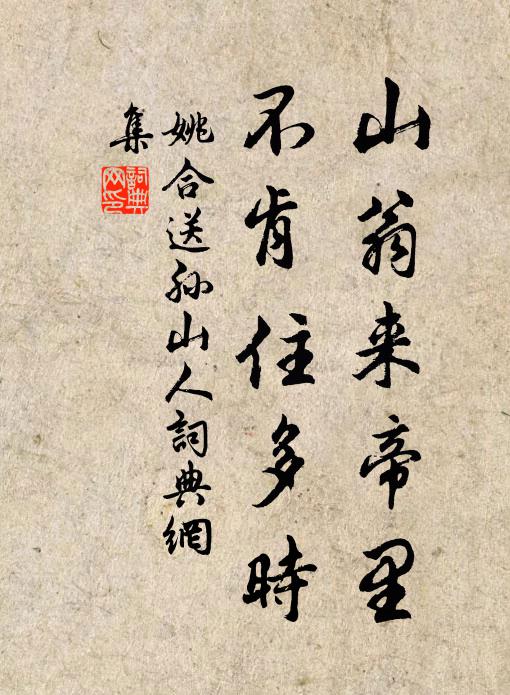 山翁来帝里
不肯住多時
姚合送孙山人詞典網
集
詞典
网印